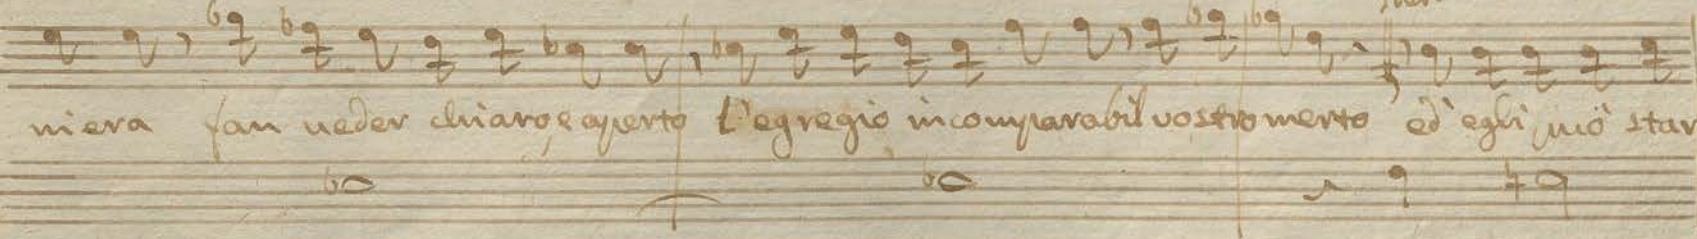 niera fan veder chiaro, e aperto L'egregio incomparabil vostro merto ed egli può star